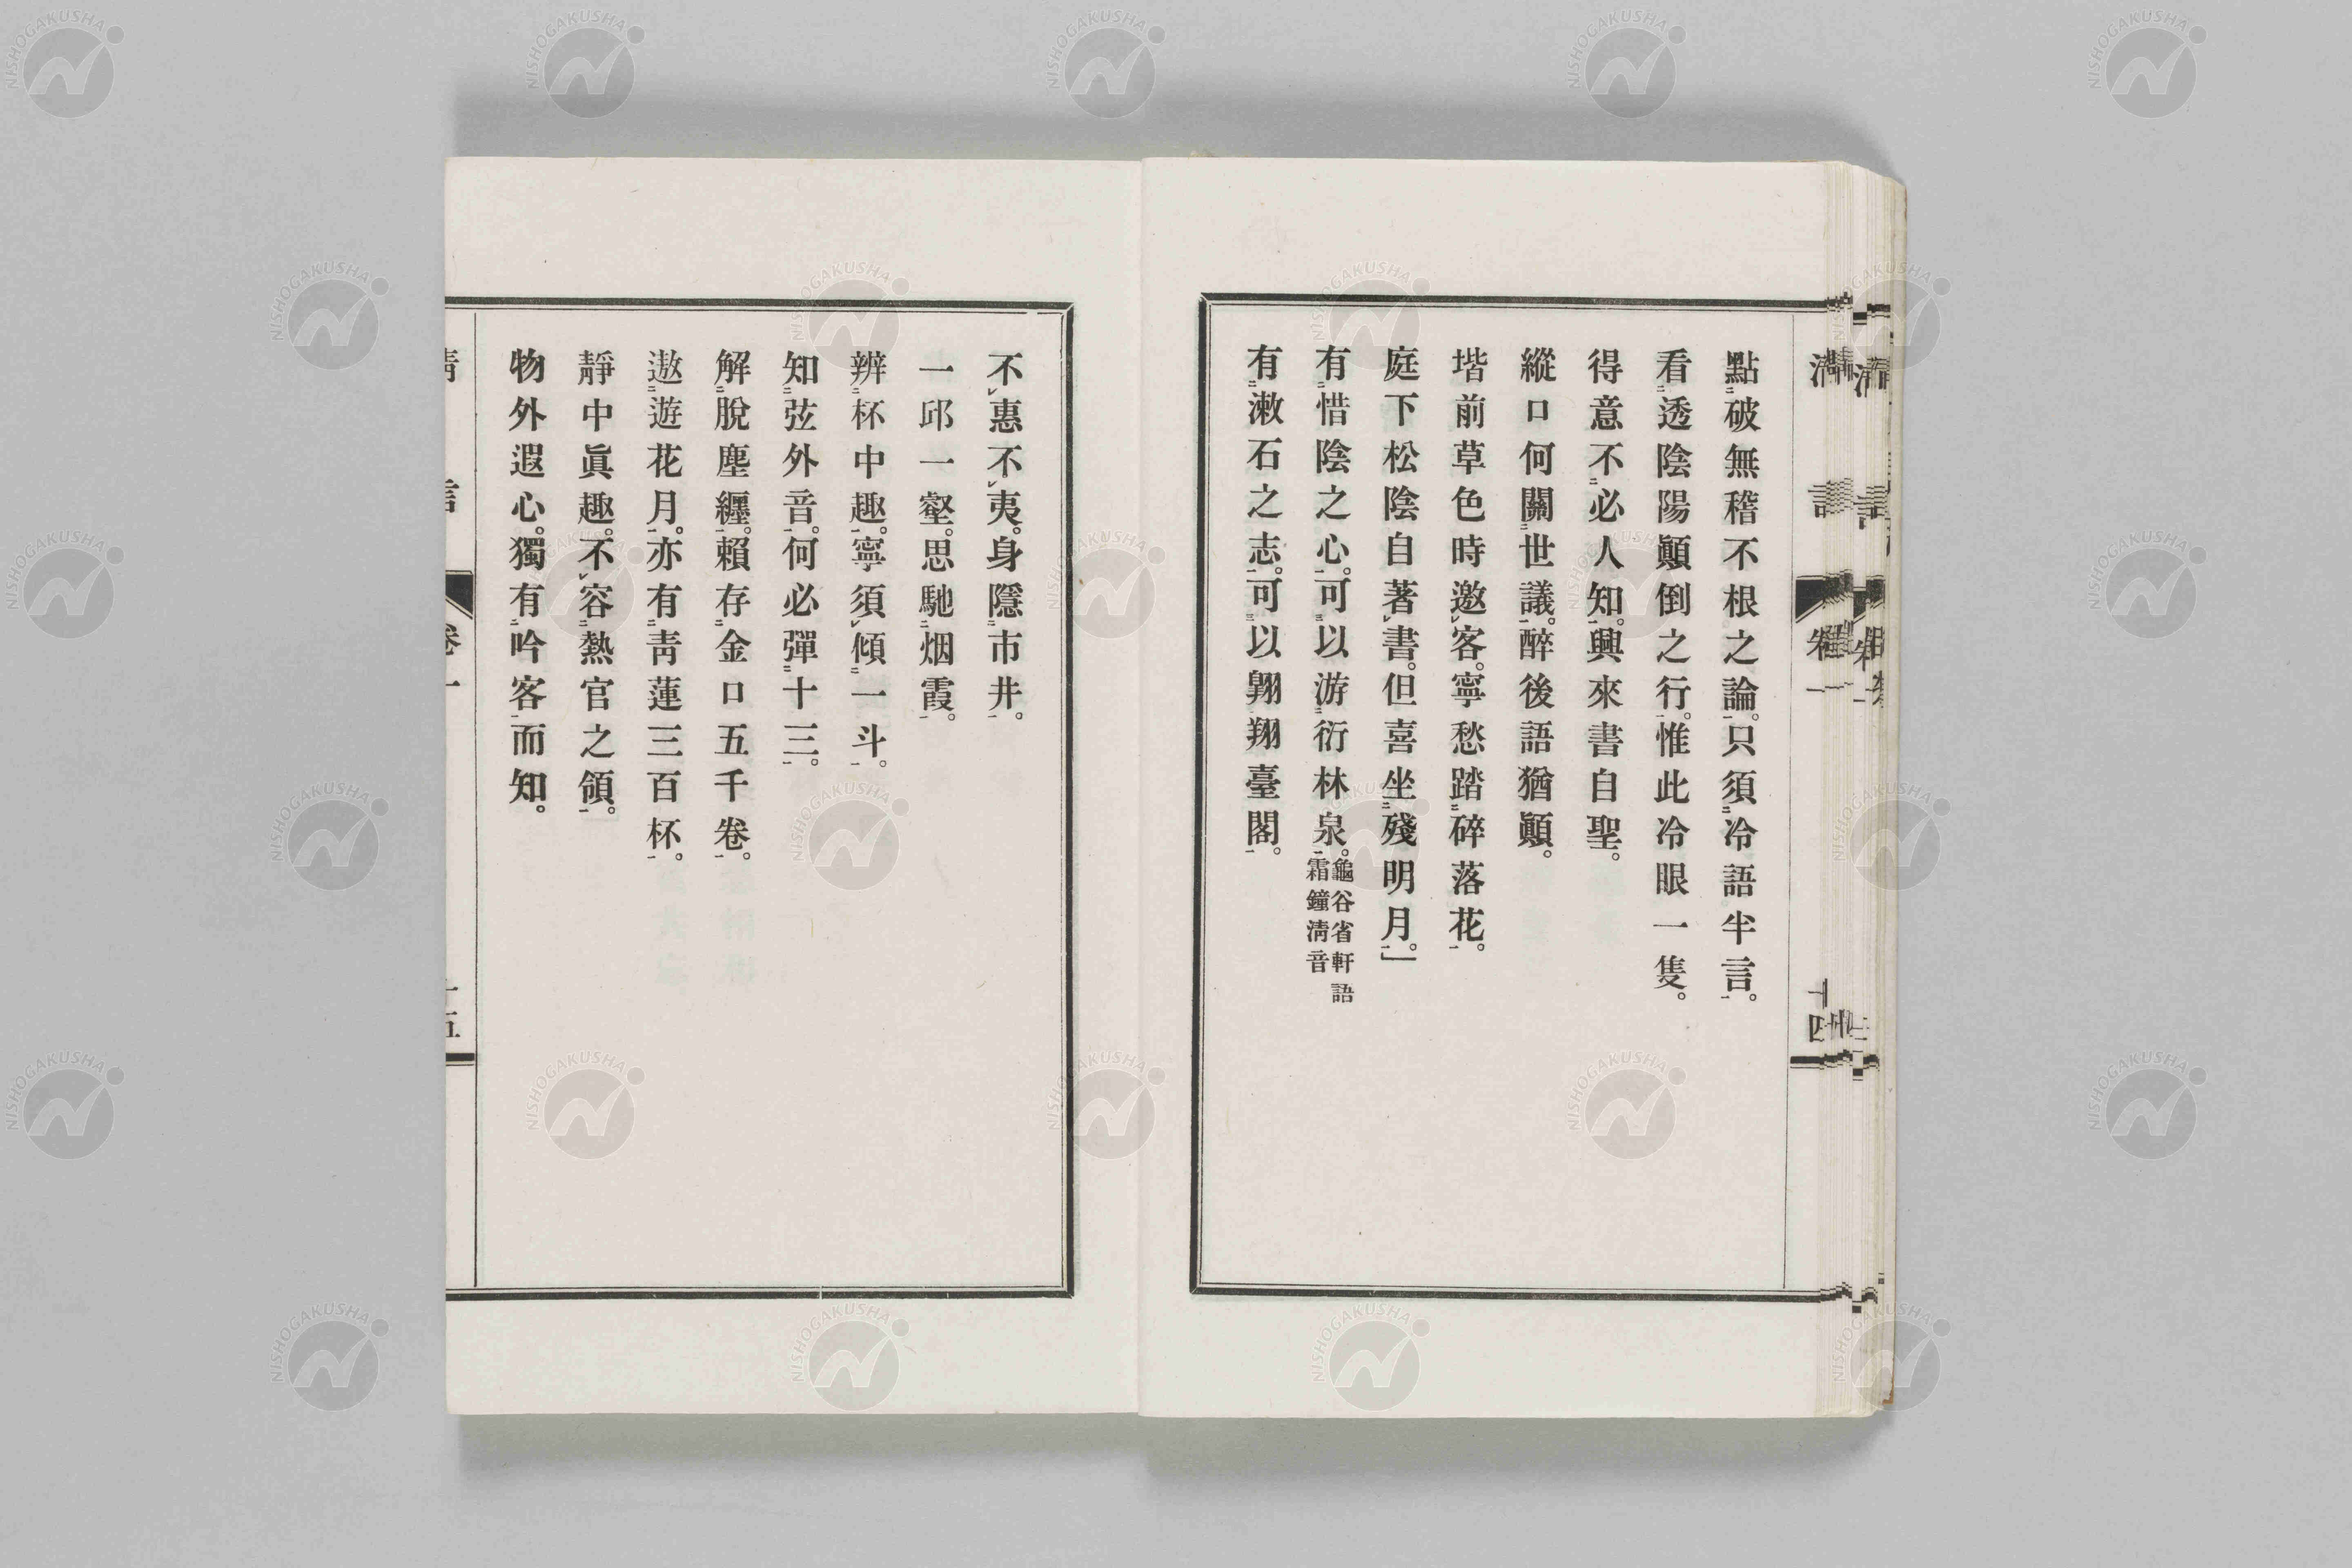 點破無稽不根之論。只須冷語半言。
看透陰陽顚倒之行。惟此冷眼一隻。
得意不必人知。興來書自聖。
縱口何關世議。醉後語猶顚。
堦前草色時邀客。寧愁踏碎落花。
庭下松陰自著書。但喜坐殘明月。」
有惜陰之心。可以游衍林泉。龜谷省軒語霜鐘淸音
有漱石之志。可以翺翔臺閣。
不惠不夷。身隱市井。
一邱一壑。思馳烟霞。
辨杯中趣。寧須傾一斗。
知弦外音。何必彈十三。
解脫塵纒。賴存金口五千卷。
遨遊花月。亦有靑蓮三百杯。
靜中眞趣。不容熱官之領。
物外遐心。獨有吟客而知。
NISHOGAKUSHA